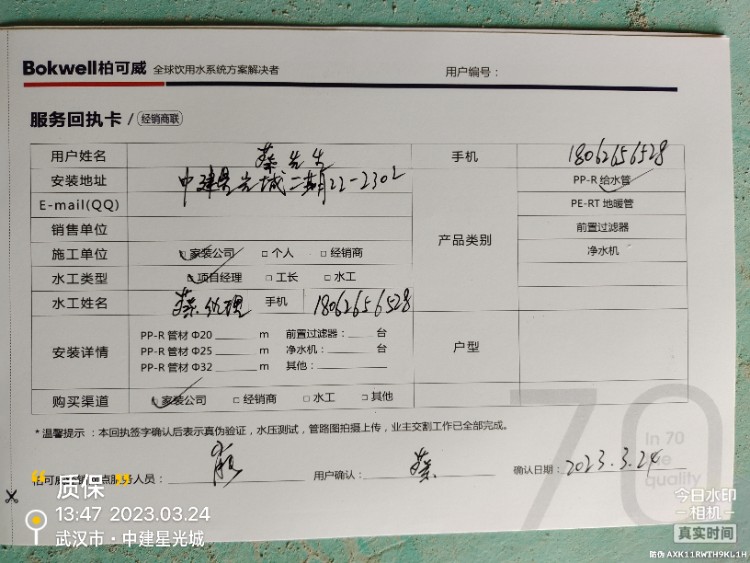 Bokwell柏可威 全球饮用水系统方案解决者 用户编号：
服务回执卡 / 经销商联
用户姓名 蔡先生 手机 18062656528
安装地址 中建星光城二期22-2302 PP-R 给水管
E-mail(QQ) PE-RT 地暖管
销售单位 产品类别 前置过滤器
施工单位 家装公司 □ 个人 □ 经销商 净水机
水工类型 项目经理 □ 工长 □ 水工
水工姓名 蔡经理 手机 18062656528
安装详情 户型
PP-R 管材 Φ20 ______ m 前置过滤器：____ 台
PP-R 管材 Φ25 ______ m 净水机：______ 台
PP-R 管材 Φ32 ______ m 其他：______
购买渠道 家装公司 □ 经销商 □ 水工 □ 其他
* 温馨提示：本回执签字确认后表示真伪验证，水压测试，管路图拍摄上传，业主交割工作已全部完成。
人员： 用户确认： 蔡 确认日期：2023.3.24
70
In 70
quality
质保
13:47 2023.03.24
武汉市·中建星光城
今日水印
相机
真实时间
防伪 AXK11RWTH9KL1H